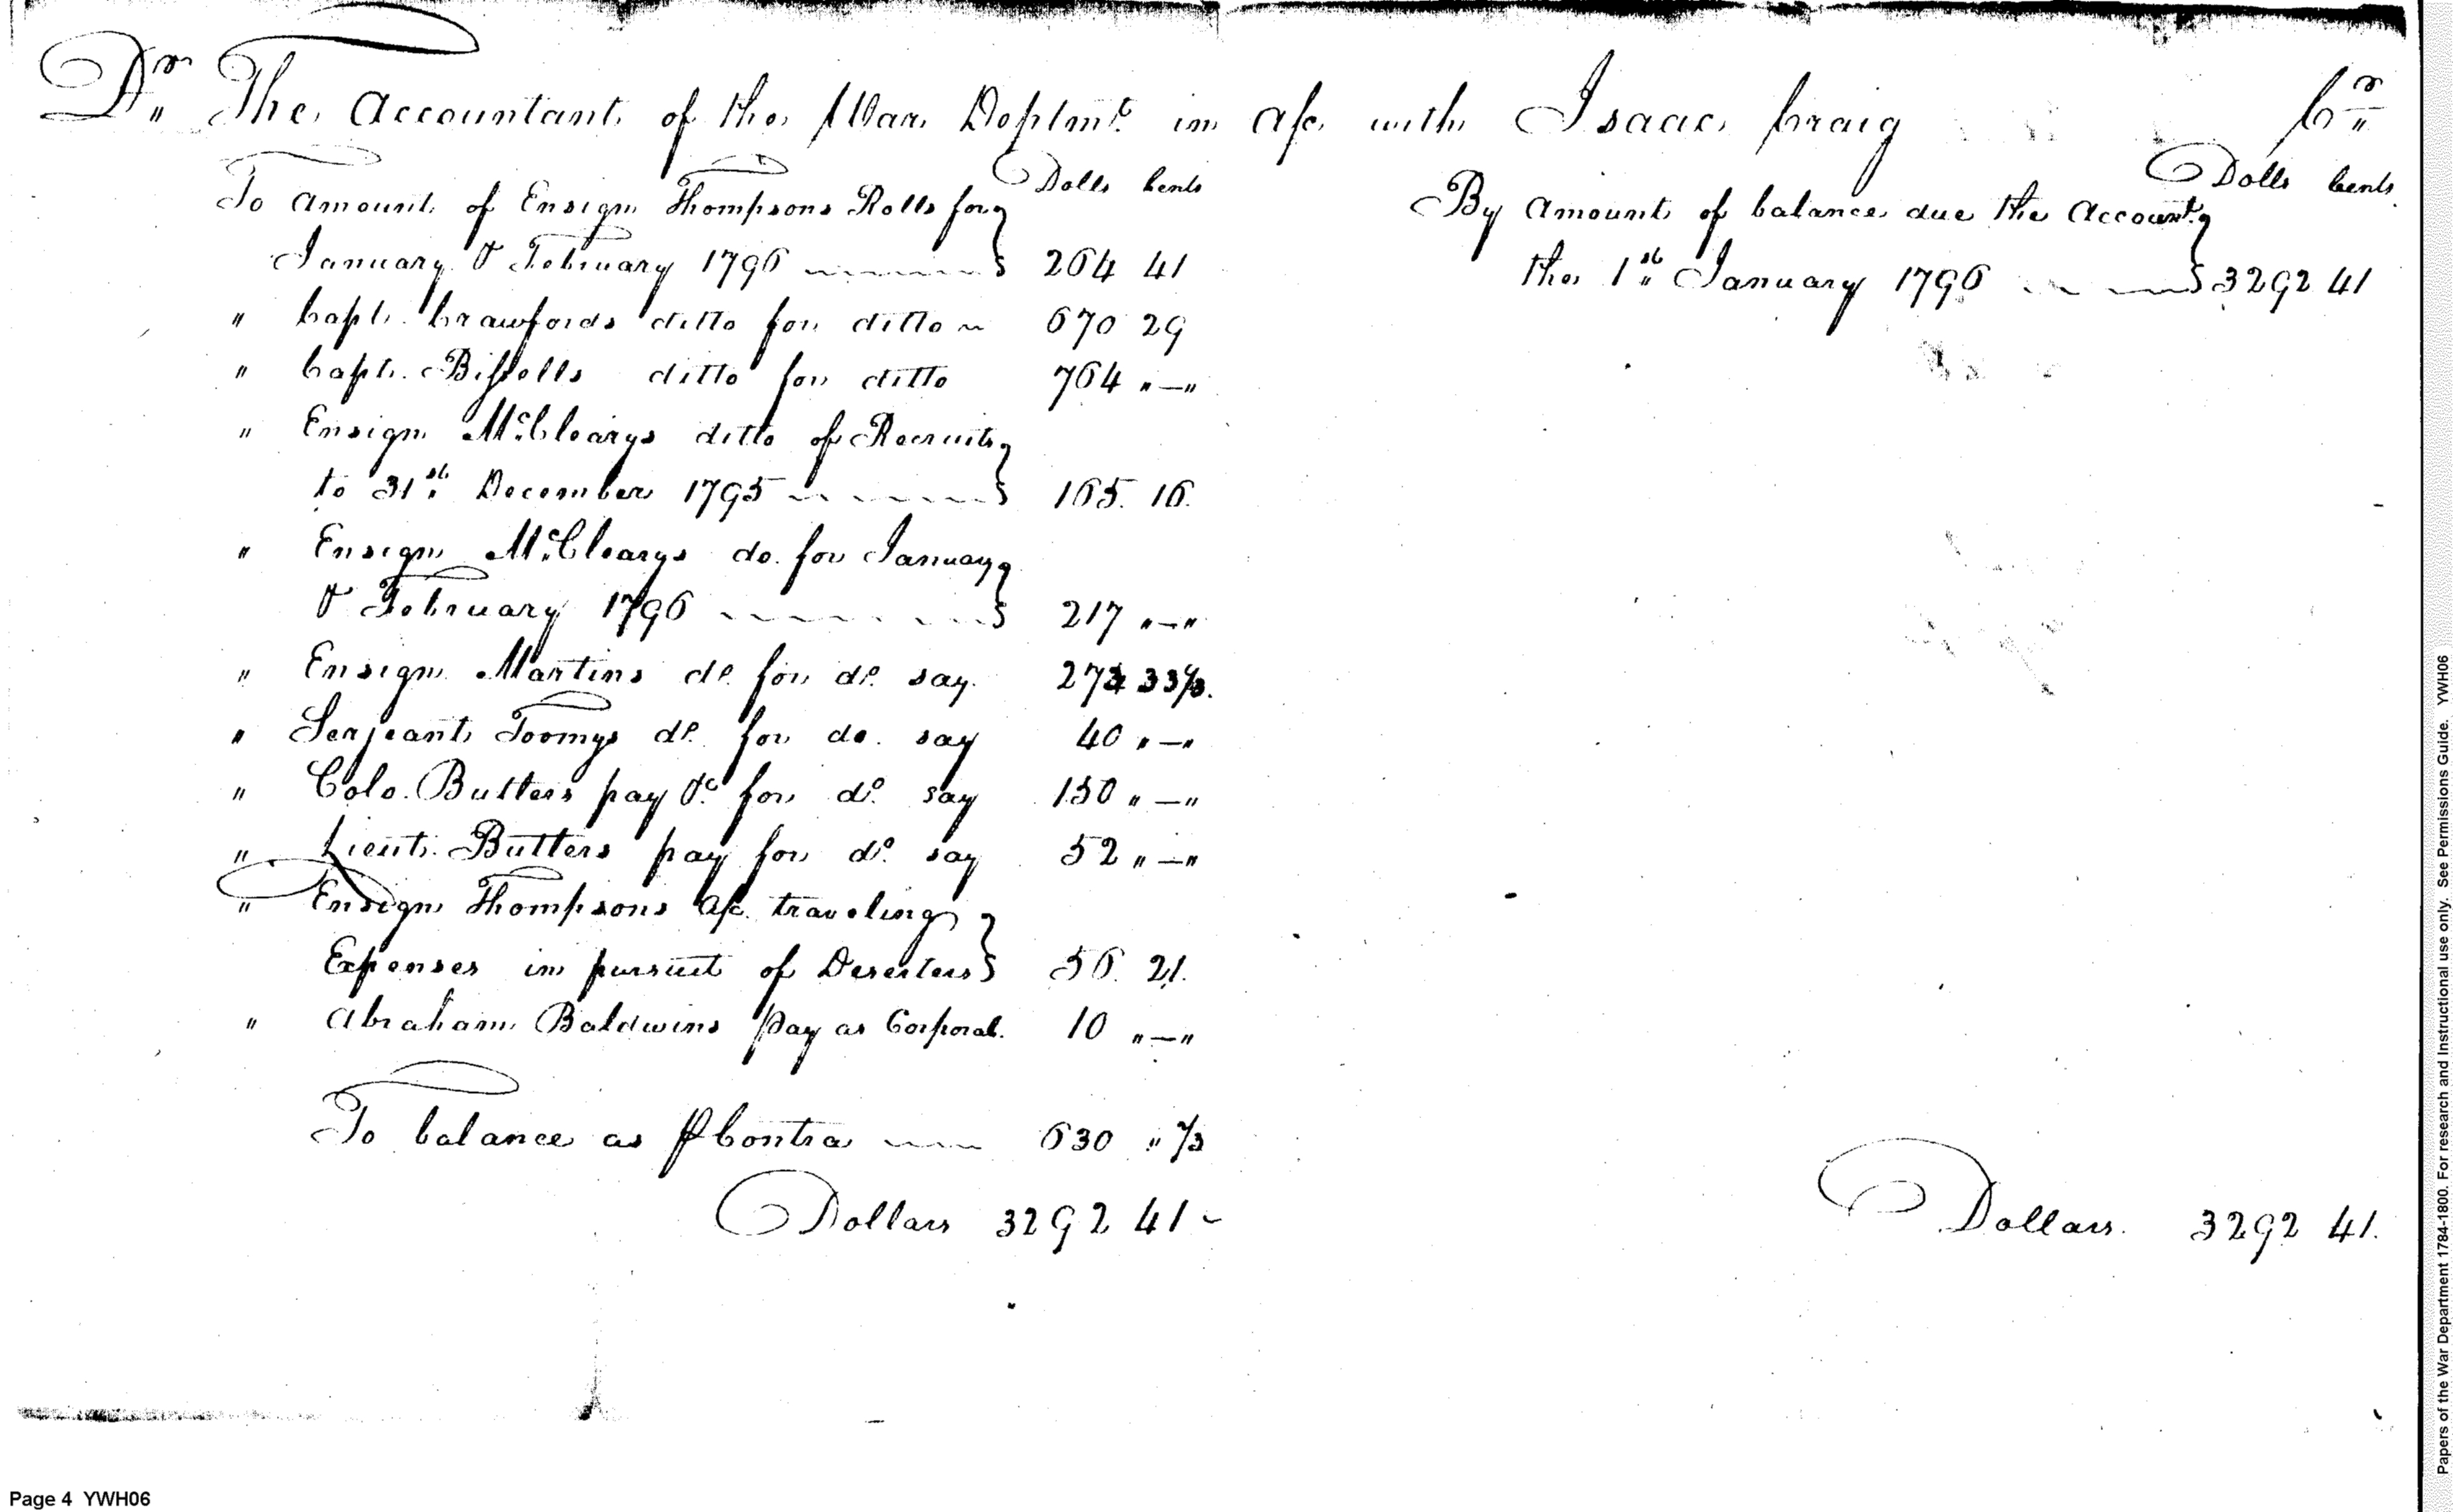 Dr. The Accountant of the War Deptmt. in a/c with Isaac Craig Cr.
Dolls Cents
To amount of Ensign Thompsons Rolls for
January & February 1796 264 41
" Capt. Crawfords ditto for ditto 670 29
" Capt. Bissells ditto for ditto 764 "—"
" Ensign McClearys ditto of Recruits
to 31st December 1795 165. 16.
" Ensign McClearys do. for January
& February 1796 217 "—"
" Ensign Martins do. for do. say 273 33 1/3.
" Serjeant Toomys do. for do. say 40 "—"
" Colo. Butlers pay &c for do. say 150 "—"
" Lieut. Butlers pay for do. say 52 "—"
" Ensign Thompsons a/c traveling
Expenses in pursuit of Deserters 56. 21.
" Abraham Baldwins Pay as Corporal. 10 "—"
To balance as P Contra 630 " 2/3
Dollars 3292 41
Dolls Cents
By Amount of balance due the Accountt.
the 1st January 1796 3292 41
Dollars. 3292 41.
Page 4 YWH06
Papers of the War Department 1784-1800. For research and Instructional use only. See Permissions Guide. YWH06